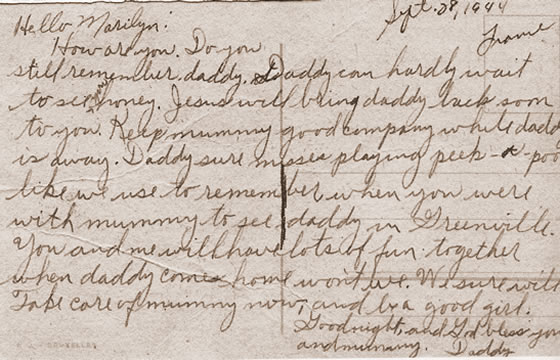 Sept. 28, 1944
France
Hello Marilyn:
How are you. Do you
still remember daddy. Daddy can hardly wait
to see honey. Jesus will bring daddy back soon
to you. Keep mummy good company while daddy
is away. Daddy sure misses playing peek-a-poo
like we use to remember when you were
with mummy to see daddy in Greenville.
You and me will have lots of fun together
when daddy comes home won't we. We sure will
Take care of mummy now, and be a good girl.
Goodnight, and God bless you
and mummy. Daddy
BRUXELLES